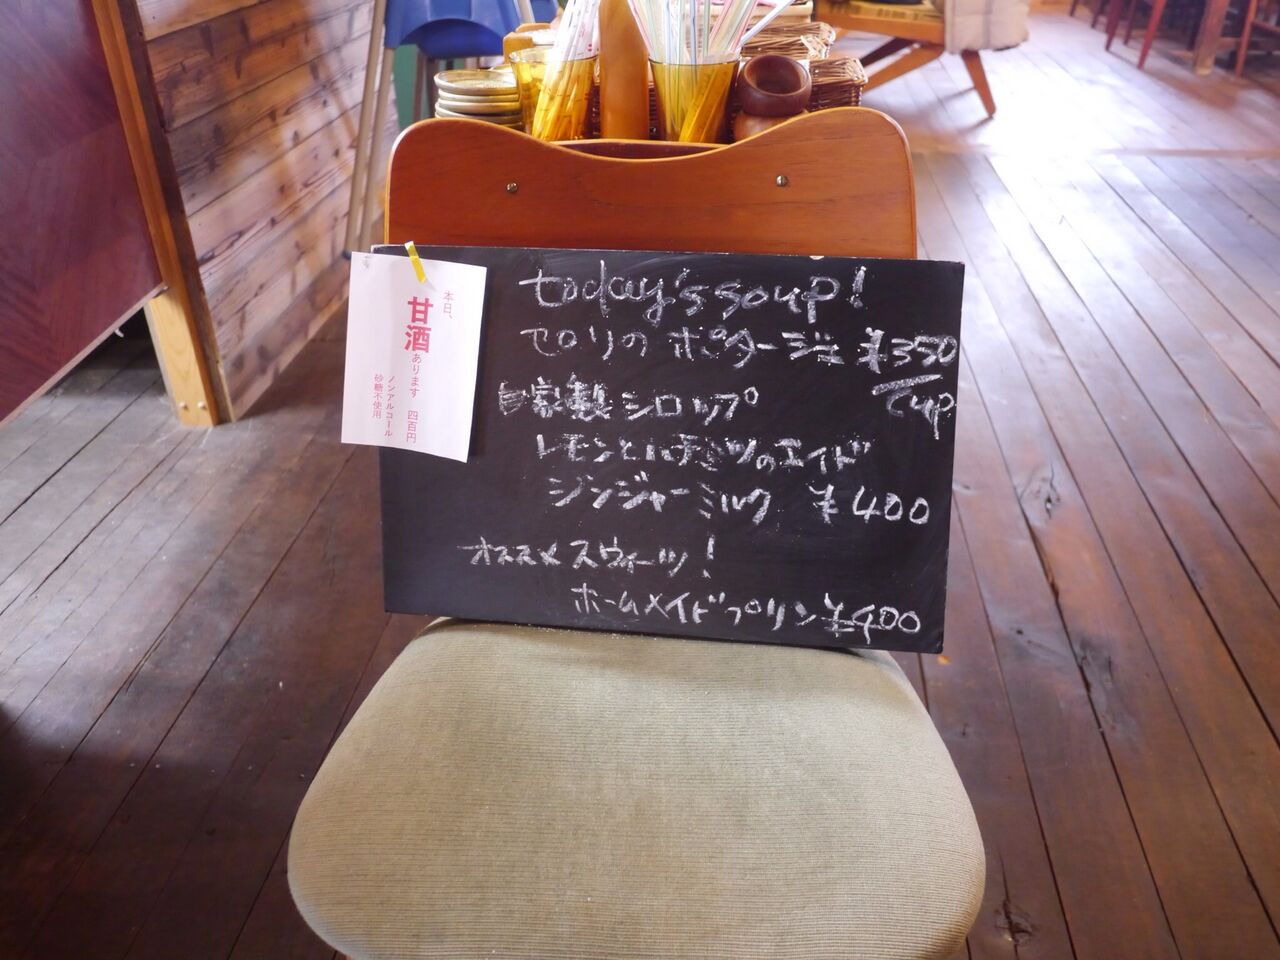 本日、
甘酒
あります 四百円
ノンアルコール
砂糖不使用
today's soup!
セロリの ポタージュ ¥350
cup
自家製シロップ
レモンとハチミツのエイド
ジンジャーミルク ¥400
オススメスウィーツ!
ホームメイドプリン ¥400